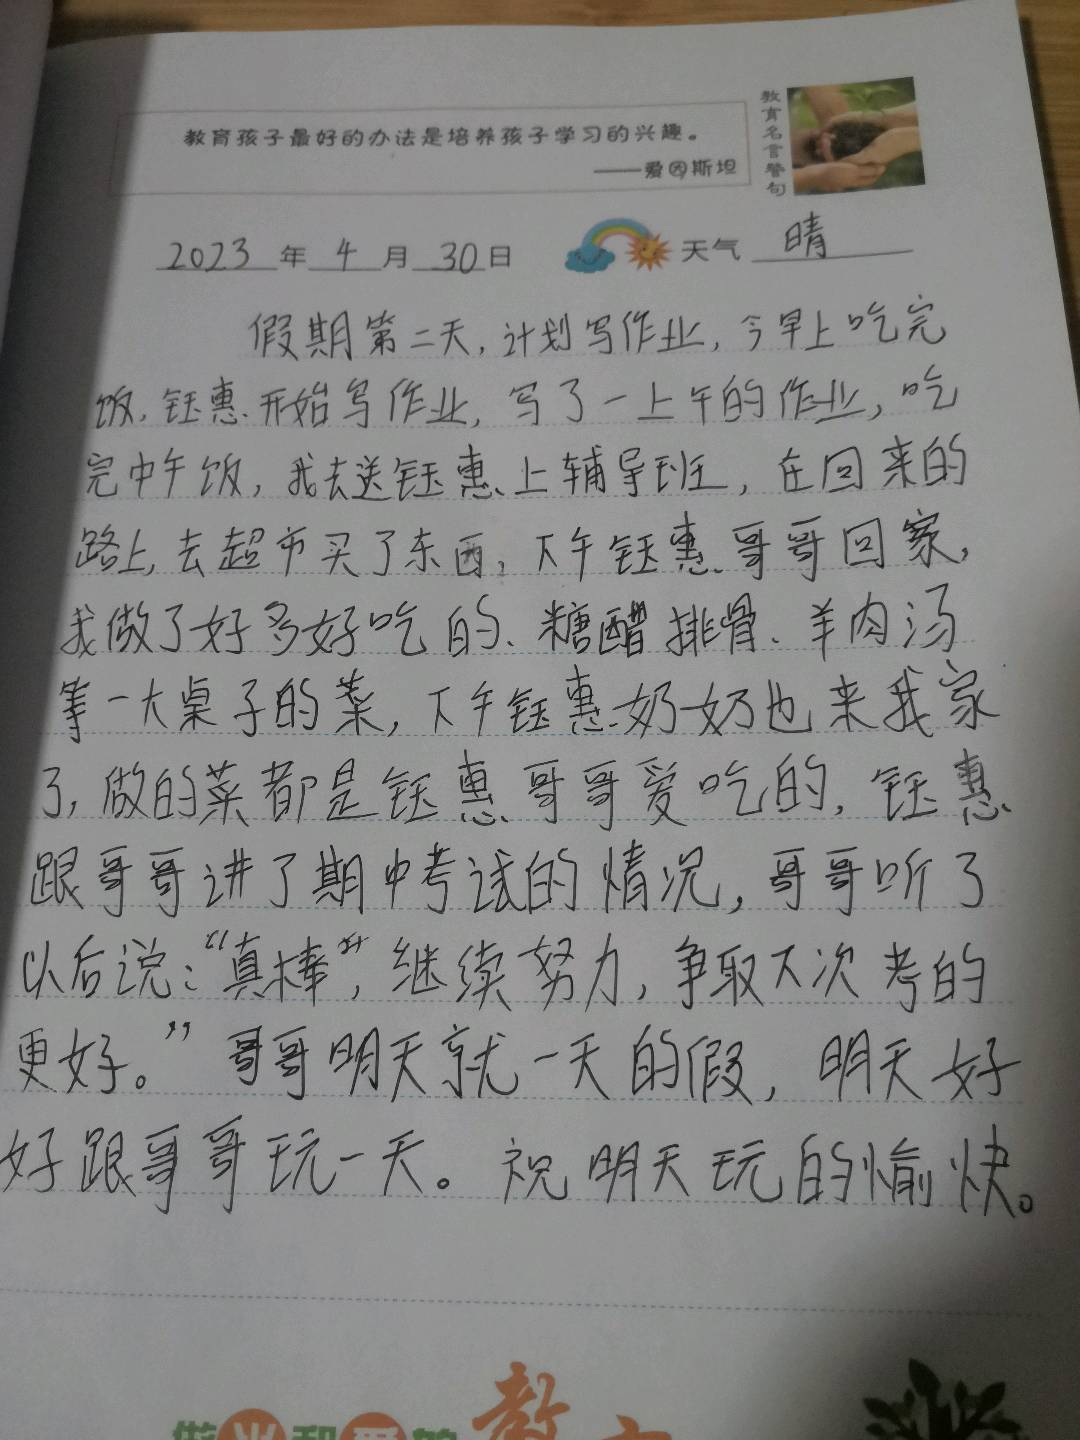 教育孩子最好的办法是培养孩子学习的兴趣。
——爱因斯坦
教育名言警句
2023年4月30日 天气 晴
假期第二天,计划写作业,今早上吃完
饭,钰惠开始写作业,写了一上午的作业,吃
完中午饭,我去送钰惠上辅导班,在回来的
路上,去超市买了东西,下午钰惠哥哥回家,
我做了好多好吃的、糖醋排骨、羊肉汤
等一大桌子的菜,下午钰惠奶奶也来我家
了,做的菜都是钰惠哥哥爱吃的,钰惠
跟哥哥讲了期中考试的情况,哥哥听了
以后说:“真棒”,继续努力,争取下次考的
更好。”哥哥明天就一天的假,明天好
好跟哥哥玩一天。祝明天玩的愉快。
做光和爱的教